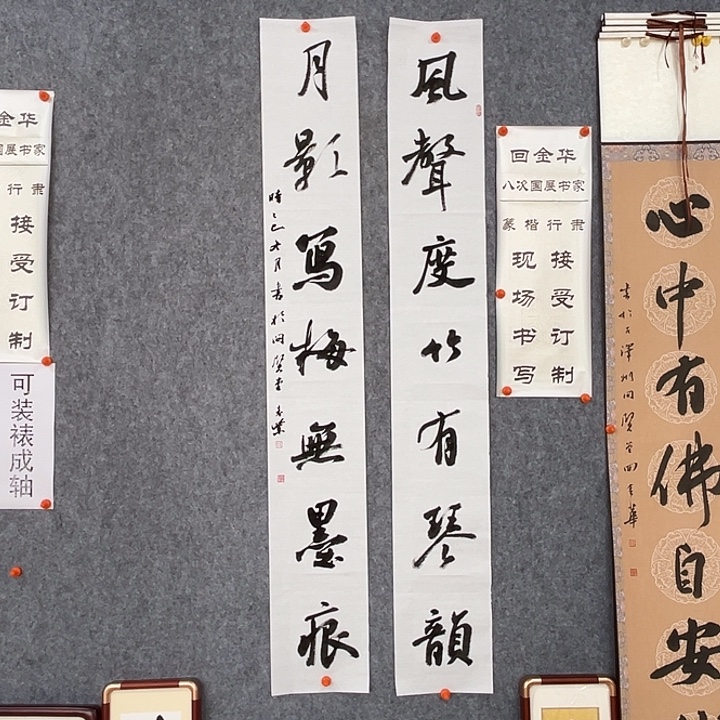 風聲度竹有琴韻
月影写梅無墨痕
時乙巳六月書於問賢堂
回金华
八次国展书家
篆楷行隶
现场书写
接受订制
心中有佛自安
金华
国展书家
行隶
接受订制
可装裱成轴